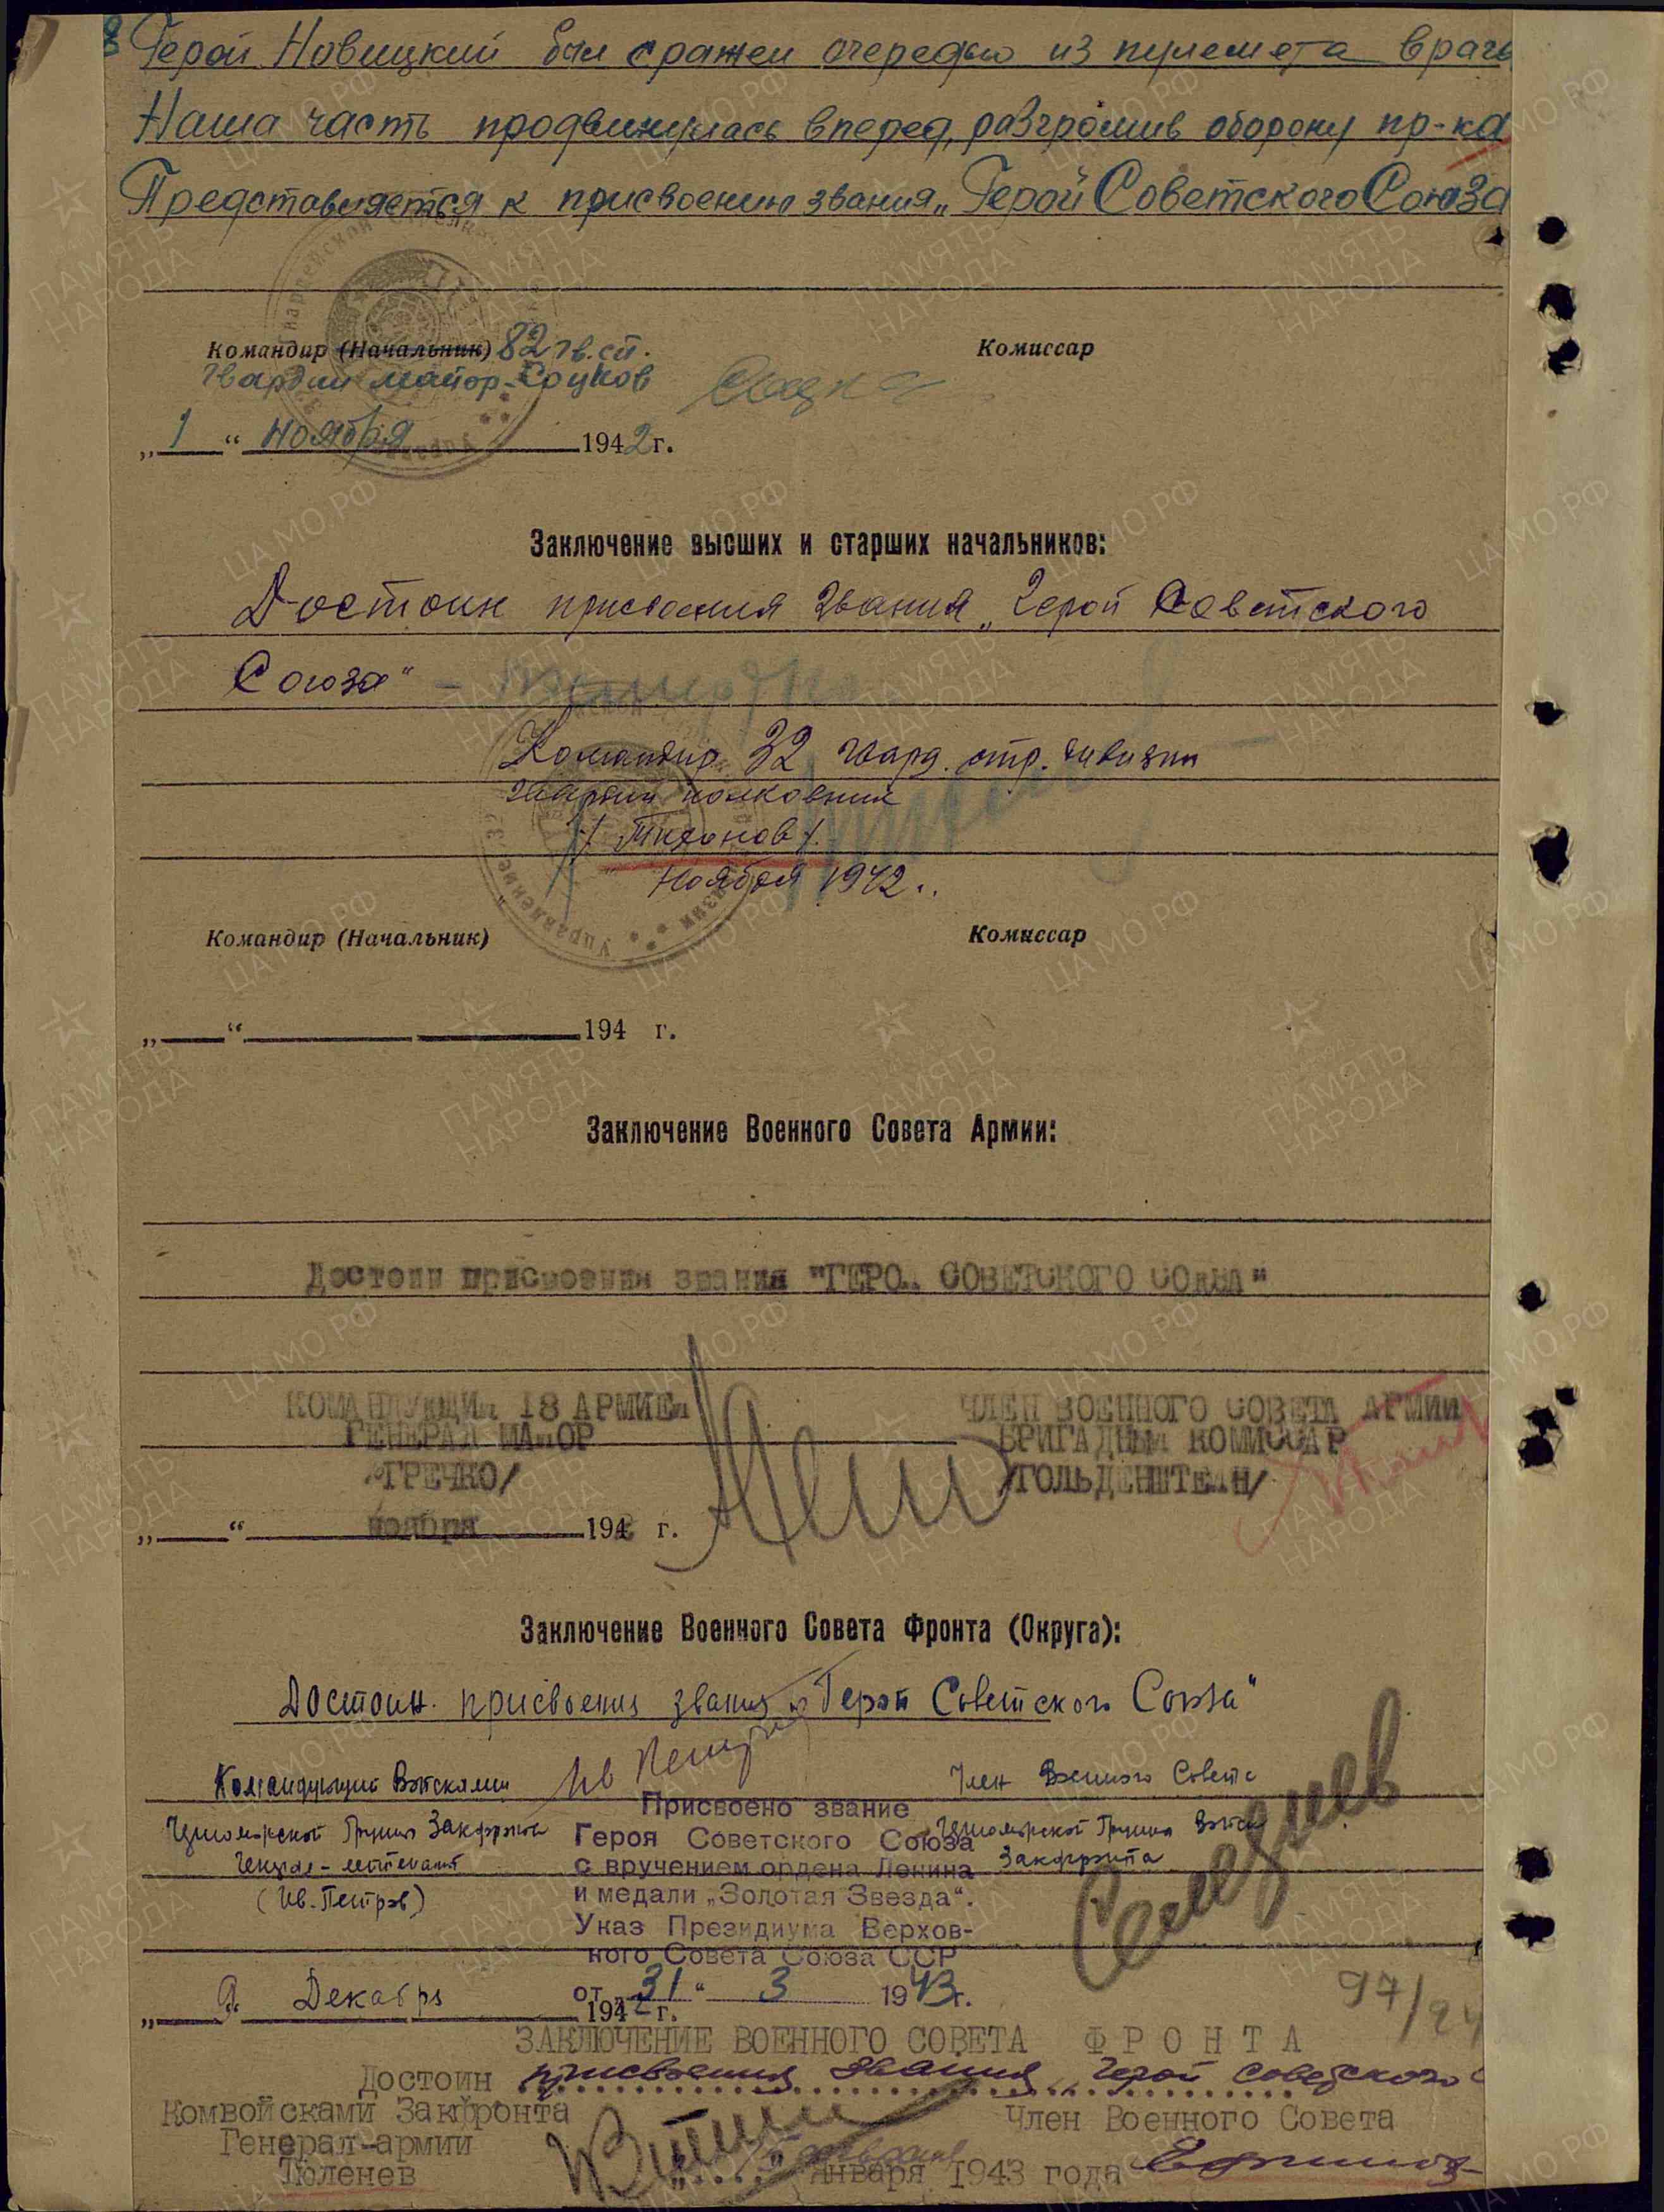 Герой Новицкий был сражен очередью из пулемета врага
Наша часть продвинулась вперед, разгромив оборону пр-ка
Представляется к присвоению звания „Герой Советского Союза
Командир (Начальник) 82 гв. сп.
Гвардии майор Соцков
Комиссар
„1“ ноября 1942 г.
Заключение высших и старших начальников:
Достоин присвоения звания „Герой Советского
Союза“ –
Командир 32 гвард. стр. дивизии
гвардии полковник
/Тихонов/.
Ноября 1942..
Командир (Начальник)
Комиссар
„ “ 194 г.
Заключение Военного Совета Армии:
Достоин присвоения звания "ГЕРОЙ СОВЕТСКОГО СОЮЗА"
КОМАНДУЮЩИЙ 18 АРМИЕЙ
ГЕНЕРАЛ МАЙОР
/ГРЕЧКО/
ЧЛЕН ВОЕННОГО СОВЕТА АРМИИ
БРИГАДНЫЙ КОМИССАР
/ГОЛЬДЕНШТЕЙН/
„ “ ноября 1942 г.
Заключение Военного Совета Фронта (Округа):
Достоин присвоения звания „Герой Советского Союза“
Командующий Войсками
Черноморской Группы Закфронта
генерал-лейтенант
(Ив. Петров)
Ив Петров
Член Военного Совета
Черноморской Группы Войск
Закфронта
Присвоено звание
Героя Советского Союза
с вручением ордена Ленина
и медали „Золотая Звезда“.
Указ Президиума Верхов-
ного Совета Союза ССР
от „31“ 3 1943 г.
„9“ Декабря 1942 г.
97/24
ЗАКЛЮЧЕНИЕ ВОЕННОГО СОВЕТА ФРОНТА
Достоин присвоения звания „Герой Советского
Комвойсками Закфронта
Генерал-армии
Тюленев
Член Военного Совета
января 1943 года
ЦАМО.РФ
ПАМЯТЬ НАРОДА